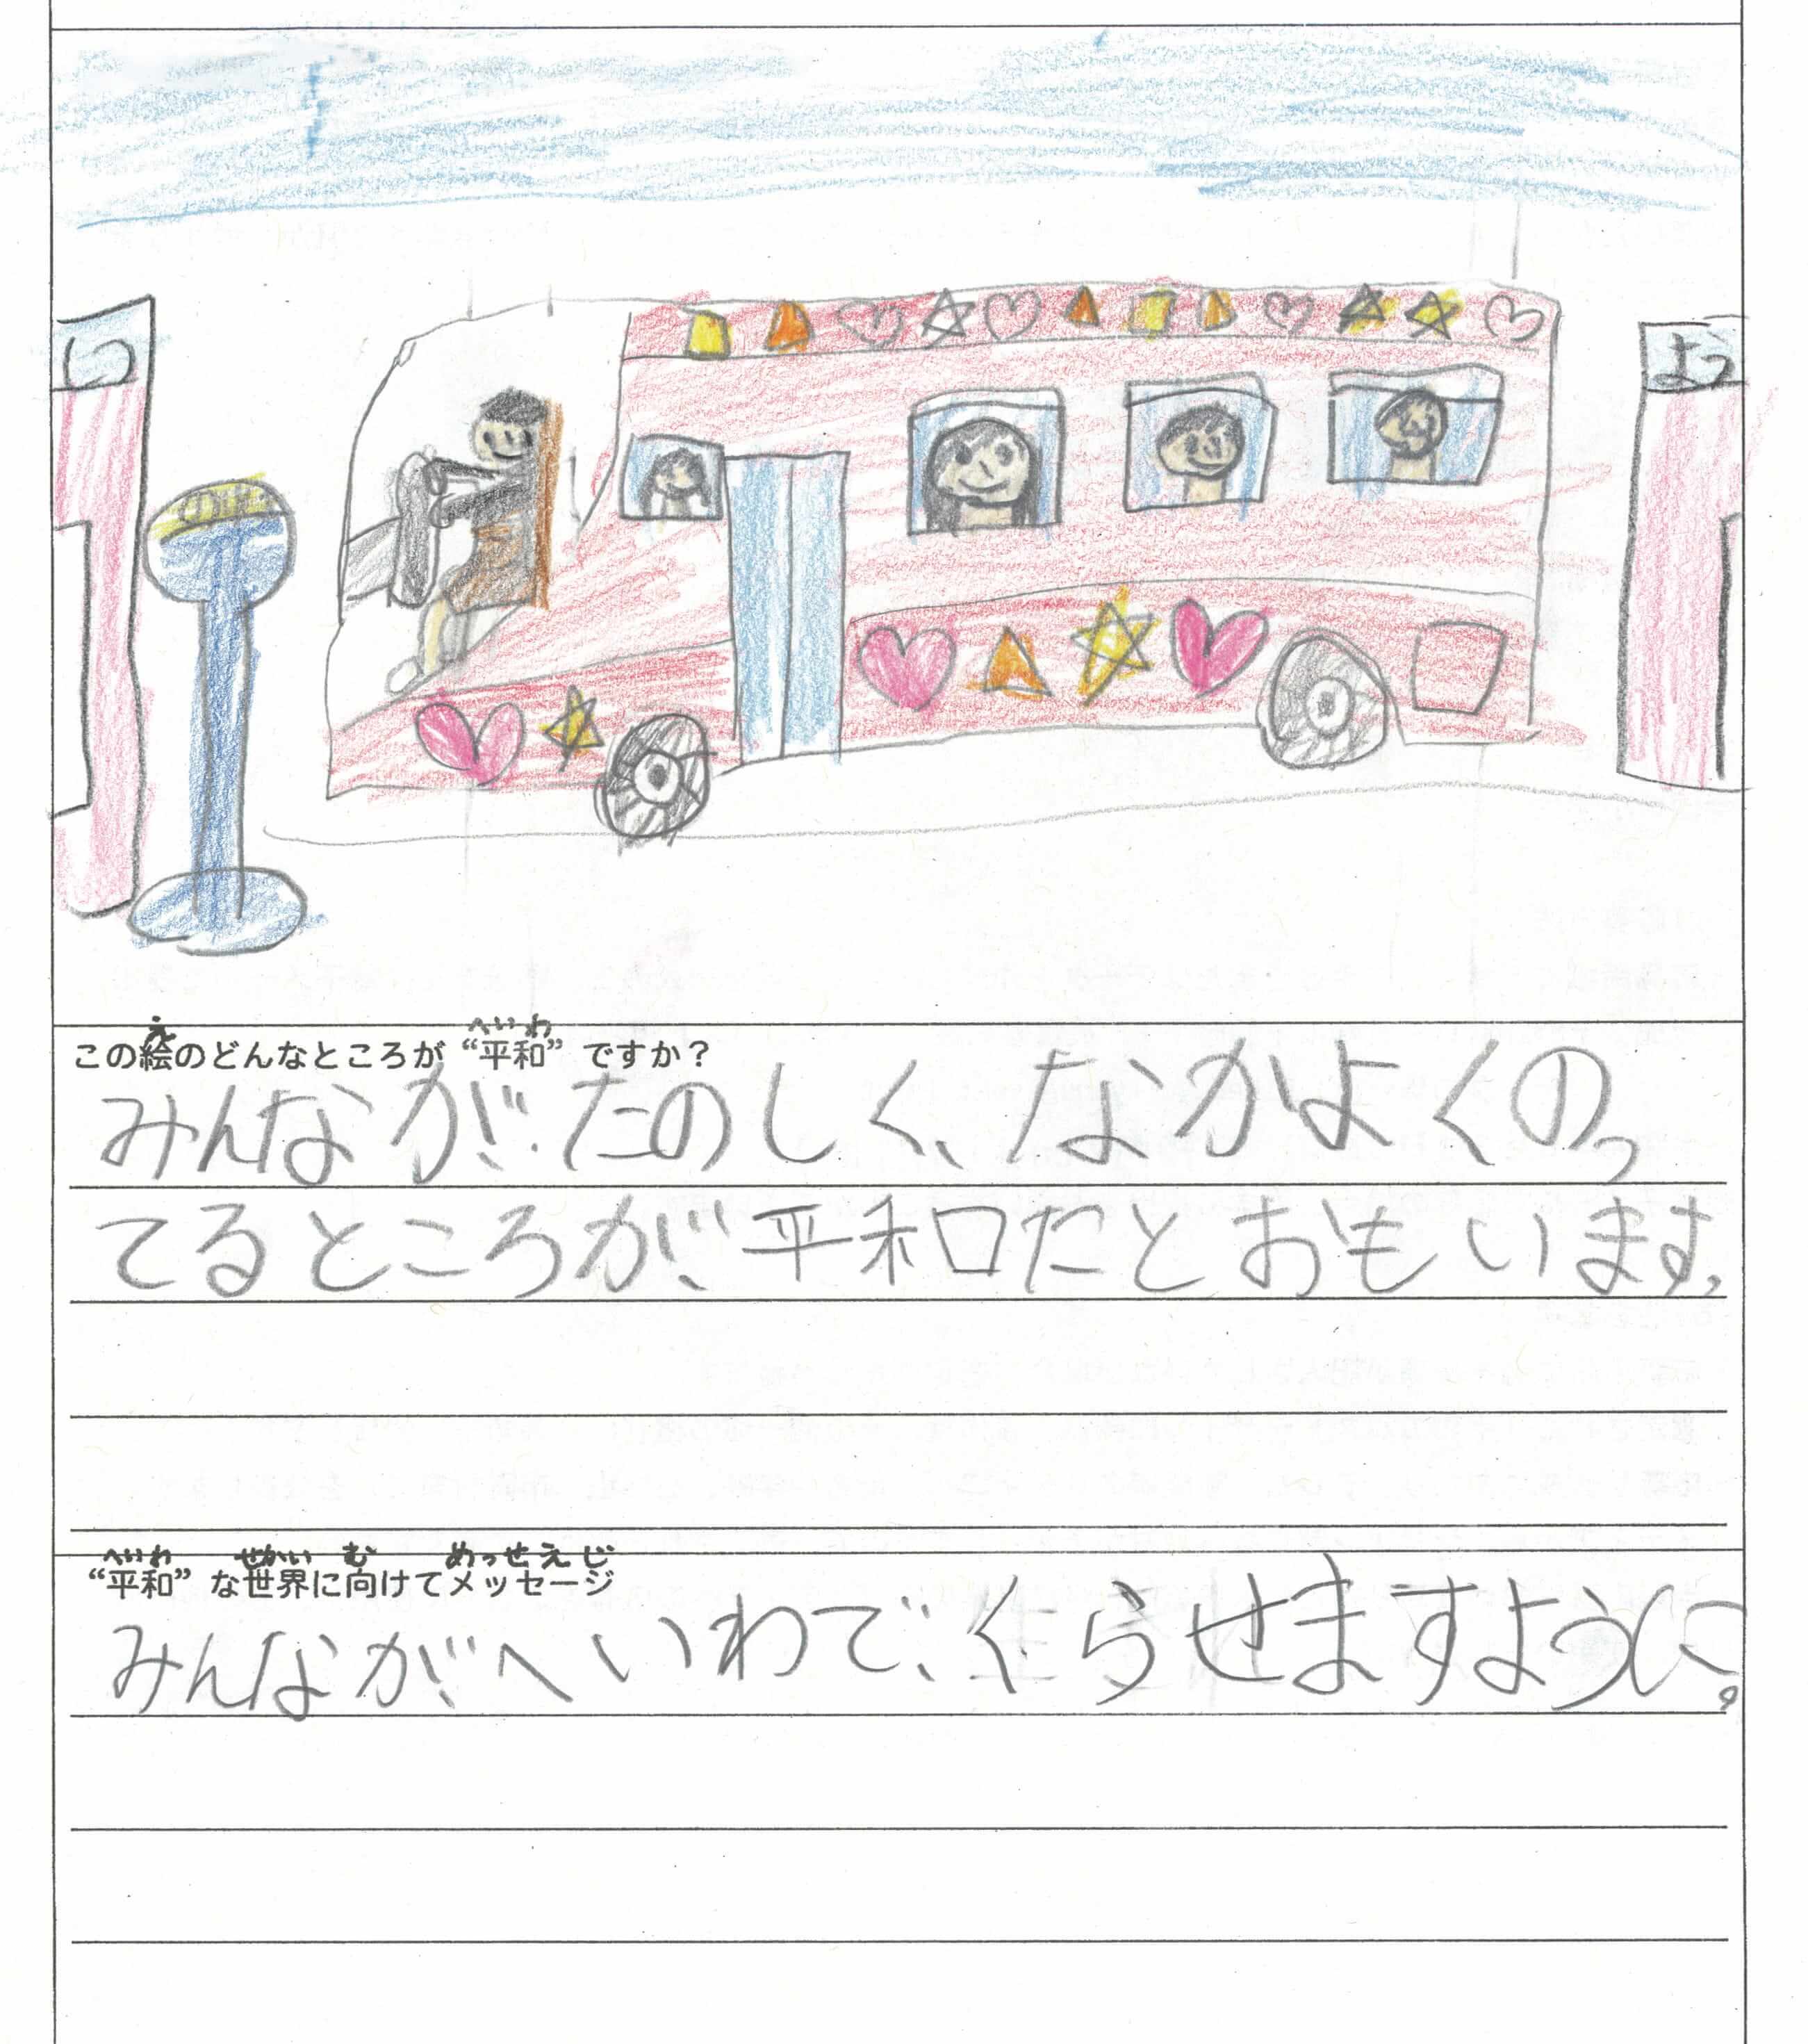 よつ
え
へいわ
この絵のどんなところが“平和”ですか？
みんなが、たのしく、なかよくのっ
てるところが、平和だとおもいます。
へいわ せかい む めっせえじ
“平和”な世界に向けてメッセージ
みんながへいわで、くらせますように。